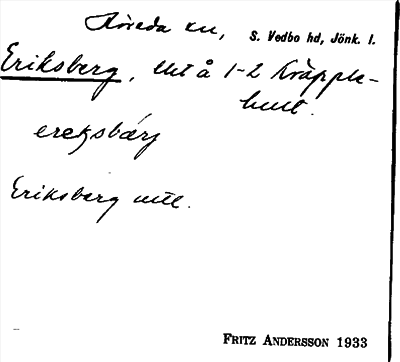 Höreda sn, S. Vedbo hd, Jönk. l.
Eriksberg, lht å 1-2 Kräpple-
hult.
ereksbærj
Eriksberg
FRITZ ANDERSSON 1933